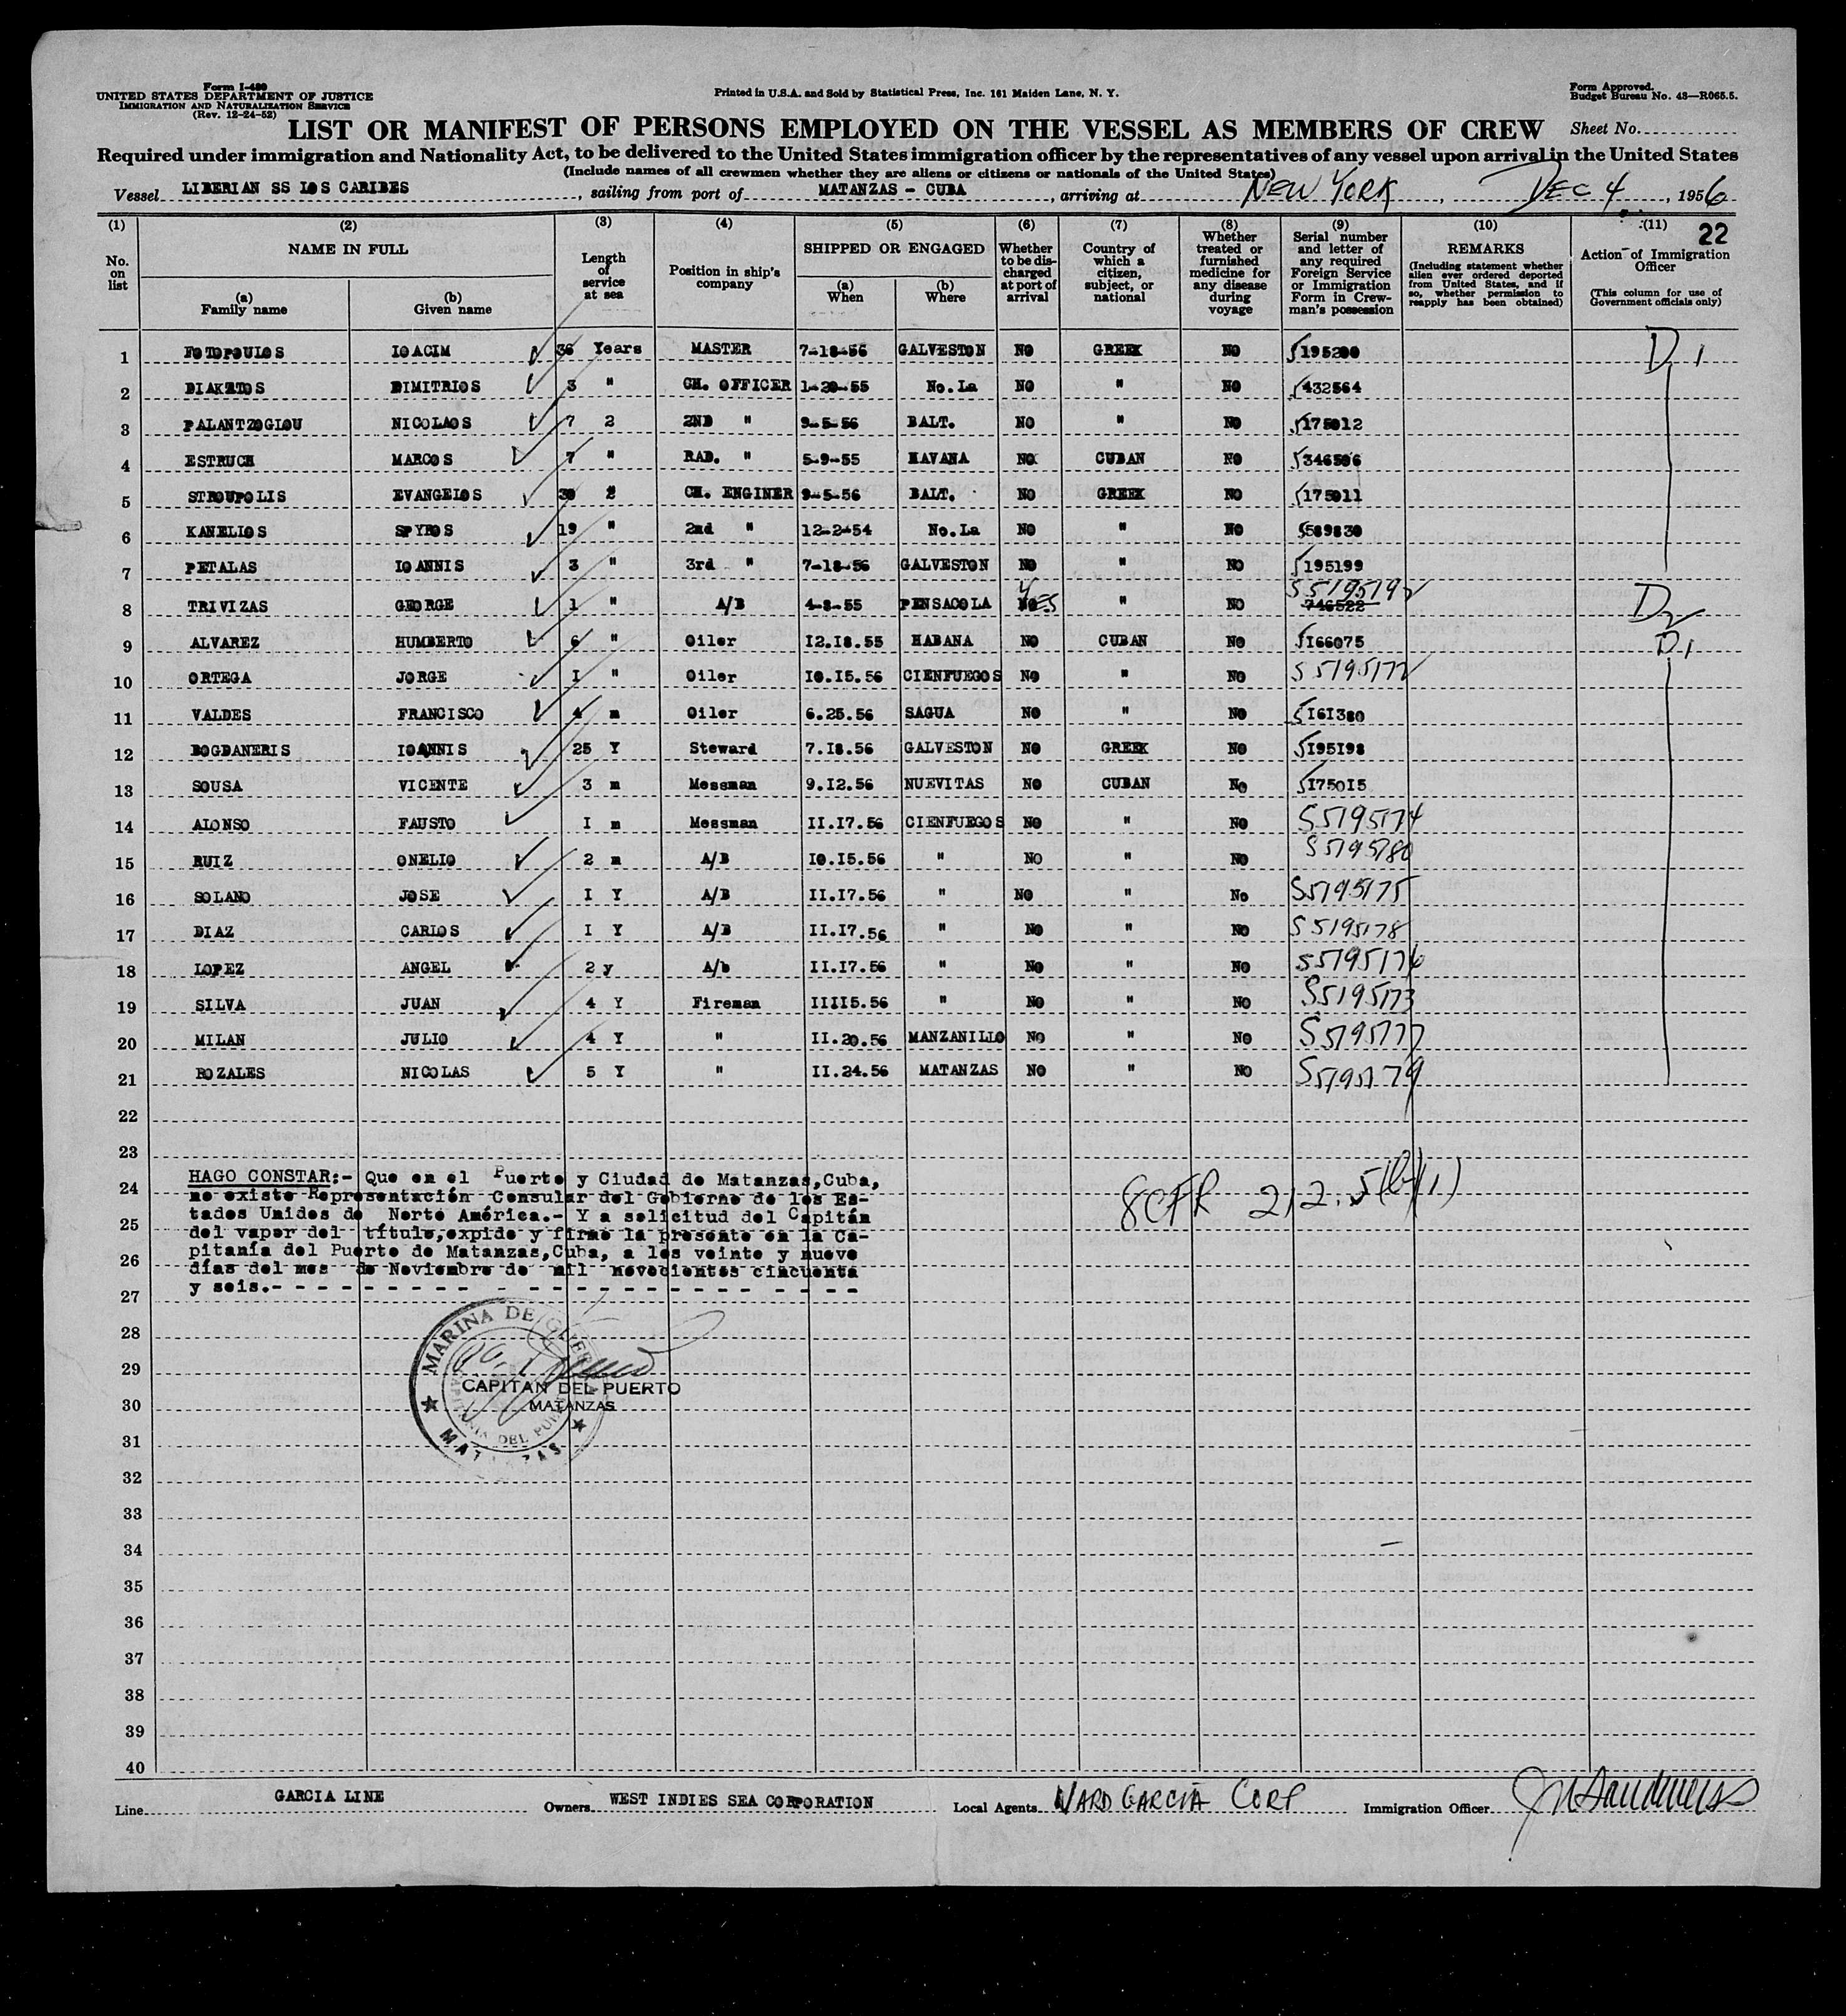 Form I-480
UNITED STATES DEPARTMENT OF JUSTICE
IMMIGRATION AND NATURALIZATION SERVICE
(Rev. 12-24-52)
Printed in U.S.A. and Sold by Statistical Press, Inc. 161 Maiden Lane, N. Y.
Form Approved.
Budget Bureau No. 43—R065.5.
LIST OR MANIFEST OF PERSONS EMPLOYED ON THE VESSEL AS MEMBERS OF CREW Sheet No.
Required under immigration and Nationality Act, to be delivered to the United States immigration officer by the representatives of any vessel upon arrival in the United States
(Include names of all crewmen whether they are aliens or citizens or nationals of the United States)
Vessel LIBERIAN SS LOS CARIBES, sailing from port of MATANZAS - CUBA, arriving at NEW YORK, DEC 4, 1956
22
(1) No. on list
(2) NAME IN FULL
(a) Family name (b) Given name
(3) Length of service at sea
(4) Position in ship's company
(5) SHIPPED OR ENGAGED
(a) When (b) Where
(6) Whether to be discharged at port of arrival
(7) Country of which a citizen, subject, or national
(8) Whether treated or furnished medicine for any disease during voyage
(9) Serial number and letter of any required Foreign Service or Immigration Form in Crewman's possession
(10) REMARKS (Including statement whether alien ever ordered deported from United States, and if so, whether permission to reapply has been obtained)
(11) Action of Immigration Officer (This column for use of Government officials only)
1 FOTOPOULOS IOACIM 36 Years MASTER 7-18-56 GALVESTON NO GREEK NO 195200 D1
2 DIAKATOS DIMITRIOS 3 " CH. OFFICER 1-20-55 No.La NO " NO 432564
3 PALANTZOGIOU NICOLAOS 7 2 2ND " 9-5-56 BALT. NO " NO 175012
4 ESTRUCH MARCOS 7 " RAD. " 5-9-55 HAVANA NO CUBAN NO 346506
5 STROUPOLIS EVANGELOS 30 2 CH. ENGINER 9-5-56 BALT. NO GREEK NO 175011
6 KANELIOS SPYROS 19 " 2nd " 12-2-54 No.La NO " NO 589830
7 PETALAS IOANNIS 3 " 3rd " 7-18-56 GALVESTON NO " NO 195199
8 TRIVIZAS GEORGE 1 " A/B 4-8-55 PENSACOLA YES " NO 746522 D2
9 ALVAREZ HUMBERTO 6 " Oiler I2.I8.55 HABANA NO CUBAN NO I66075 D1
10 ORTEGA JORGE I " Oiler I0.I5.56 CIENFUEGOS NO " NO S5195172
11 VALDES FRANCISCO 4 m Oiler 6.25.56 SAGUA NO " NO I6I380
12 BOGDANERIS IOANNIS 25 Y Steward 7.I8.56 GALVESTON NO GREEK NO I95I98
13 SOUSA VICENTE 3 m Messman 9.I2.56 NUEVITAS NO CUBAN No I750I5
14 ALONSO FAUSTO I m Messman II.I7.56 CIENFUEGOS NO " NO S5195174
15 RUIZ ONELIO 2 m A/B I0.I5.56 " NO " NO S5195180
16 SOLANO JOSE I Y A/B II.I7.56 " NO " No S5195175
17 DIAZ CARLOS I Y A/B II.I7.56 " No " NO S5195178
18 LOPEZ ANGEL 2 y A/b II.I7.56 " No " NO S5195176
19 SILVA JUAN 4 Y Fireman IIII5.56 " No " NO S5195173
20 MILAN JULIO 4 Y " II.20.56 MANZANILLO No " No S5195177
21 ROZALES NICOLAS 5 Y " II.24.56 MATANZAS NO " NO S5195179
22
23
24
25
26
27
28
29
30
31
32
33
34
35
36
37
38
39
40
HAGO CONSTAR:- Que en el Puerto y Ciudad de Matanzas,Cuba,
no existe Representación Consular del Gobierno de los Es-
tados Unidos de Norte América.- Y a solicitud del Capitán
del vapor del título,expido y firmo la presente en la Ca-
pitanía del Puerto de Matanzas,Cuba, a los veinte y nueve
días del mes de Noviembre de mil novecientos cincuenta
y seis.- - - - - - - - - - - - - - - - - - -
8CFR 212.5(b)(1)
MARINA DE GUERRA
CAPITAN DEL PUERTO
MATANZAS
MATANZAS
Line GARCIA LINE Owners WEST INDIES SEA CORPORATION Local Agents WARD GARCIA CORP Immigration Officer